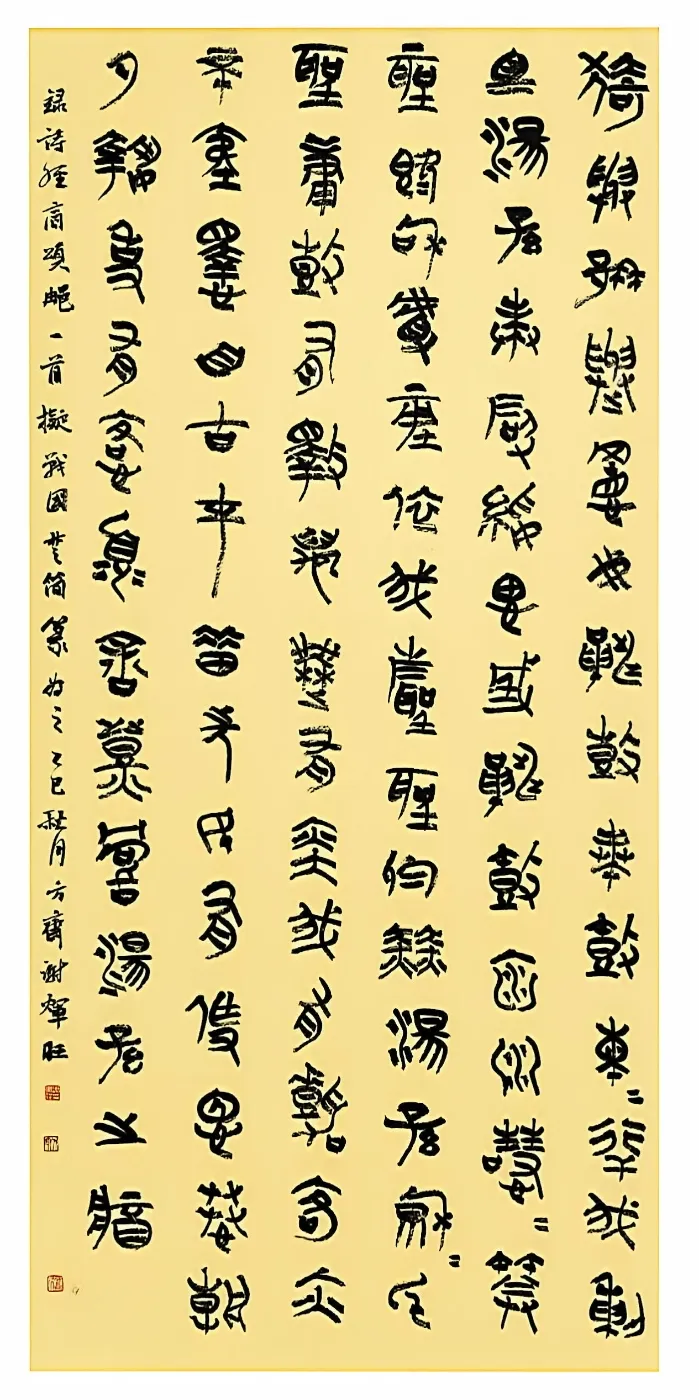 猗與那與置我鞉鼓奏鼓簡=衎我烈
且湯孫奏叚綏思成鞉鼓淵淵嘒=管
聲既和且平依我磬聲於赫湯孫穆=厥
聲庸鼓有斁萬舞有奕我有嘉客亦
不夷懌自古在昔先民有作溫恭朝
夕執事有恪顧余烝嘗湯孫之將
錄詩經商頌那一首擬戰國楚簡篆為之乙巳秋月方齋謝旺